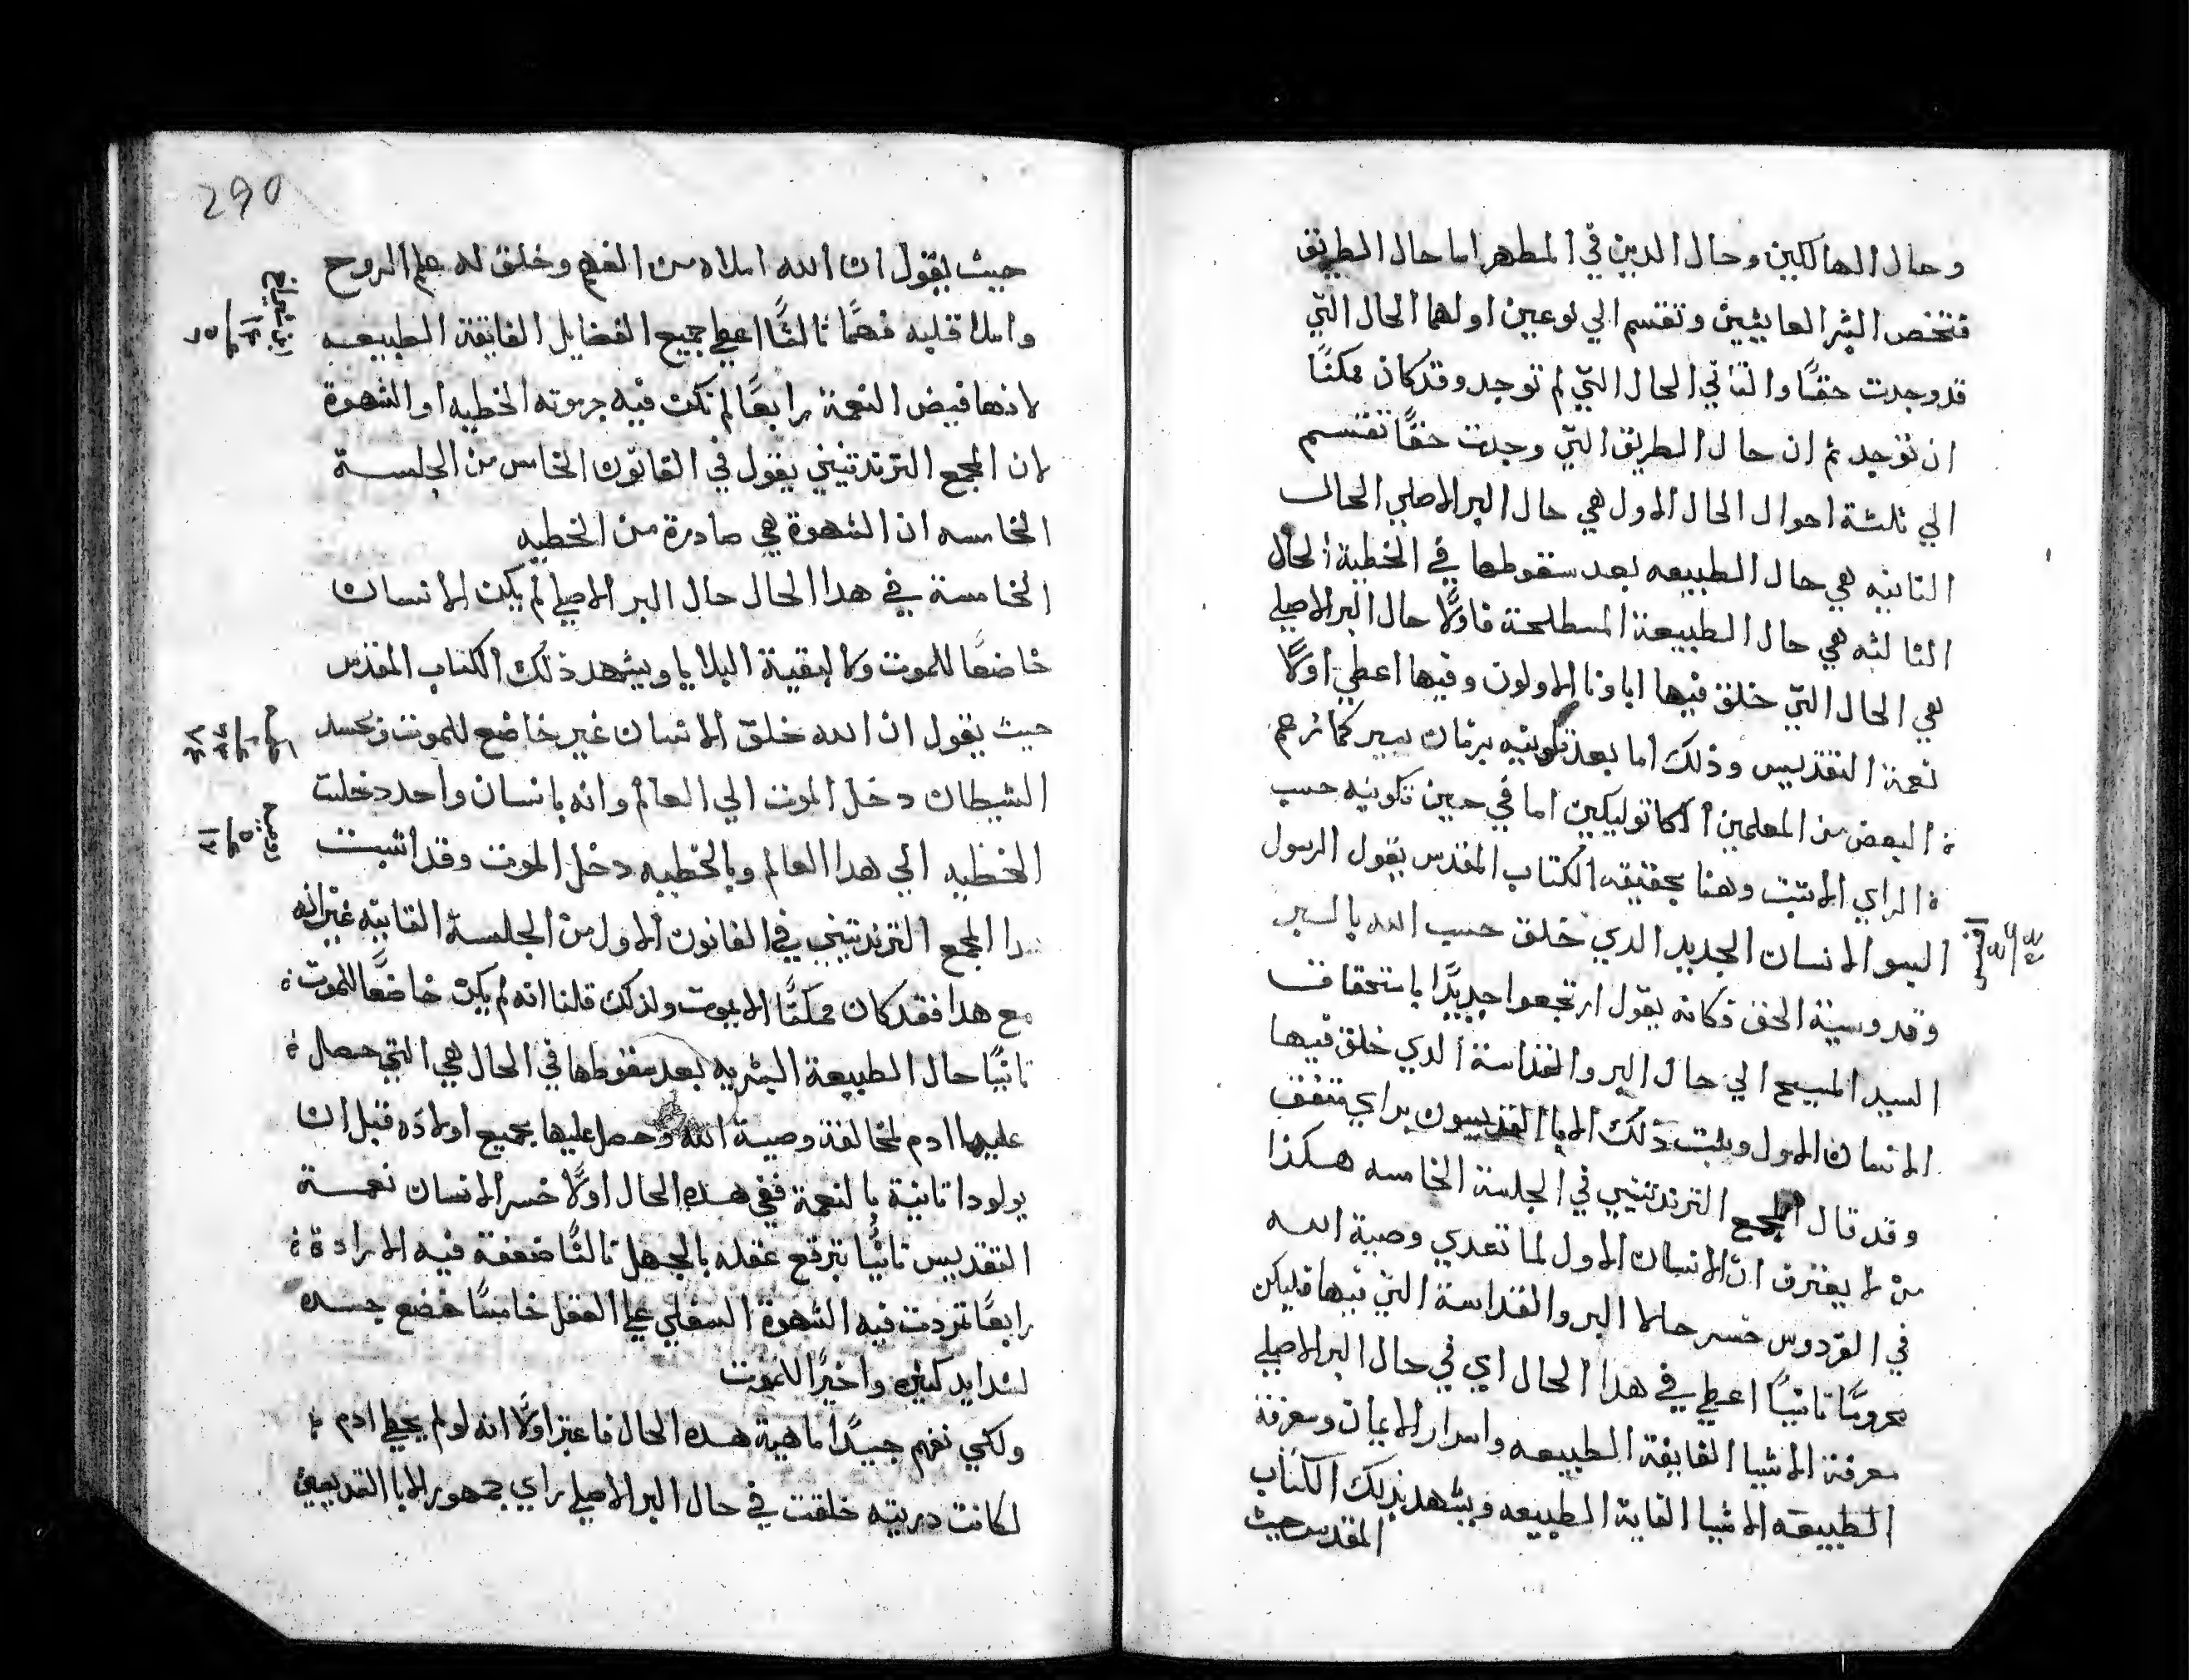 وحال الهالكين وحال الدين في المطهر اما حال الطريق
فتختص البشر العايشين وتقسم الي نوعين اولهما الحال التي
قد وجدت حقًا والتاني الحال التي لم توجد وقد كان ممكنًا
ان توجد ثم ان حال الطريق التي وجدت حقًا تقتسم
الي ثلثة احوال الحال الاول هي حال البر الاصلي الحال
التانيه هي حال الطبيعه بعد سقوطها في الخطية الحال
التالته هي حال الطبيعة المسطلحة فاولًا حال البر الاصلي
هي الحال التي خلق فيها ابا ونا الاولون وفيها اعطي اولًا
نعمة التقديس وذلك اما بعد تكوينه بزمان يسير كما زعم
البعض من المعلمين الكاتوليكين اما في حين تكوينه حسب
الراي الاتبت وهنا بحقيقه الكتاب المقدس يقول الرسول
البسو الانسان الجديد الدي خلق حسب الله بالبر
وقدوسية الحق فكانه يقول ارتجعوا جديدًا باستحقاق
السيد المسيح الي حال البر والقداسة الدي خلق فيها
الانسان الاول ويتبت ذلك الابا القديسون براي متفق
وقد قال المجمع التريدنتيني في الجلسة الخامسه هكذا
من لا يعترف ان الانسان الاول لما تعدي وصية الله
في الفردوس خسر حالا البر والقداسة التي فيها فليكن
محرومًا تانيًا اعطي في هدا الحال اي في حال البر الاصلي
معرفة الاشيا الفايقة الطبيعه واسرار الايمان ومعرفة
الطبيعه الاشيا الفاية الطبيعه ويشهد بذلك الكتاب
المقدس حيث
290
حيث يقول ان الله املاه من الفهم وخلق له علم الروح
واملا قلبه فهمًا تالتًا اعطي جميع الفضايل الفايقة الطبيعه
لانها فيض النعمة رابعًا لم تكن فيه جرتوته الخطيه او الشهوة
لان المجمع التريدنتيني يقول في القانون الخامس من الجلسة
الخامسه ان الشهوة هي صادرة من الخطيه
الخامسة في هدا الحال حال البر الاصلي لم يكن الانسان
خاضعًا للموت ولا لبقية البلايا ويشهد ذلك الكتاب المقدس
حيث يقول ان الله خلق الانسان غير خاضع للموت وبحسد
الشيطان دخل الموت الي العالم وانه بانسان واحد دخلت
الخطيه الي هدا العالم وبالخطيه دخل الموت وقد اتبت
دا المجمع التريدنتيني في القانون الاول من الجلسة التانيه غير انه
مع هدا فقد كان ممكنًا الا يموت ولذلك قلنا انه لم يكن خاضعًا للموت
تانيًا حال الطبيعة البشريه بعد سقوطها في الحال هي التي حصل
عليها ادم لمخالفة وصية الله وحصل عليها جميع اولاده قبل ان
يولودا تانية بالنعمة ففي هده الحال اولًا خسر الانسان نعمة
التقديس تانيًا تبرقع عقله بالجهل تالتًا ضعفة فيه الارادة
رابعًا تمردت فيه الشهوة السفلي علي العقل خامسًا خضع جسده
لشدايد كتيره واخيرًا للموت
ولكي نفهم جيدًا ماهية هده الحال فاعتبر اولًا انه لو لم يخطي ادم
لكانت دريته خلقت في حال البر الاصلي راي جمهور الابا القديسين